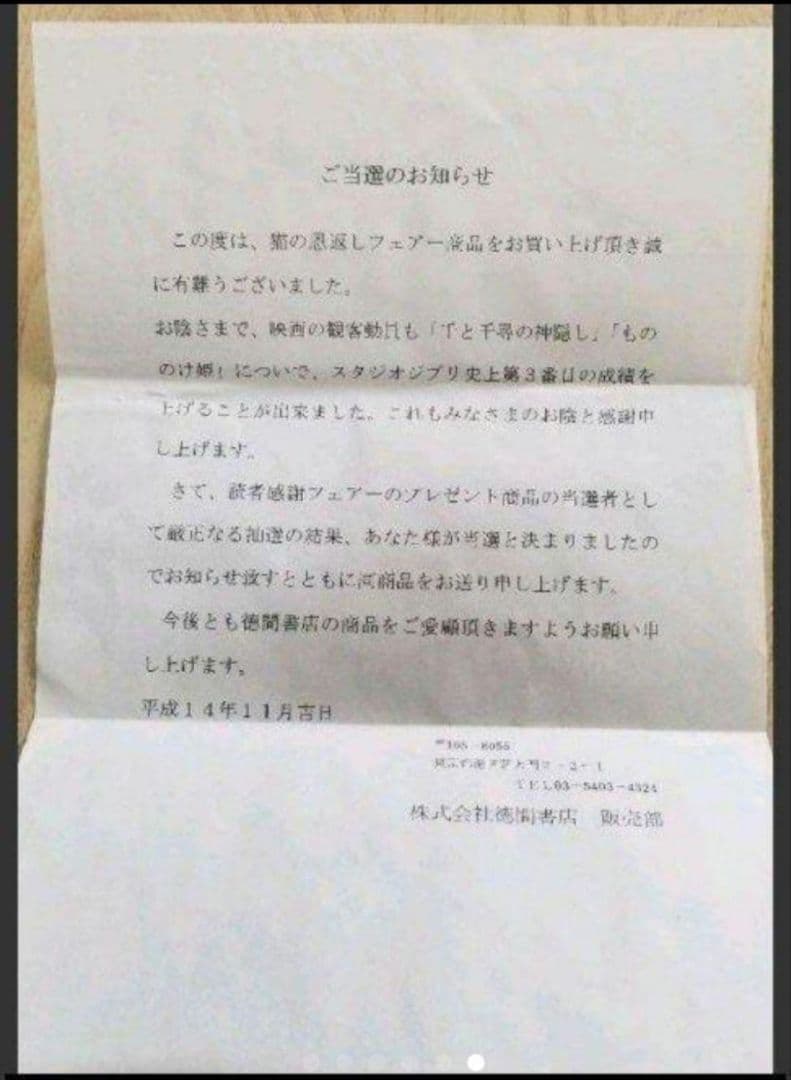 ご当選のお知らせ
この度は、猫の恩返しフェアー商品をお買い上げ頂き誠
に有難うございました。
お陰さまで、映画の観客動員も「千と千尋の神隠し」「もの
のけ姫」についで、スタジオジブリ史上第3番目の成績を
上げることが出来ました。これもみなさまのお陰と感謝申
し上げます。
さて、読者感謝フェアーのプレゼント商品の当選者とし
て厳正なる抽選の結果、あなた様が当選と決まりましたの
でお知らせ致すとともに商品をお送り申し上げます。
今後とも徳間書店の商品をご愛顧頂きますようお願い申
し上げます。
平成14年11月吉日
〒105-8055
東京都港区芝大門2-2-1
TEL03-5403-4324
株式会社徳間書店 販売部